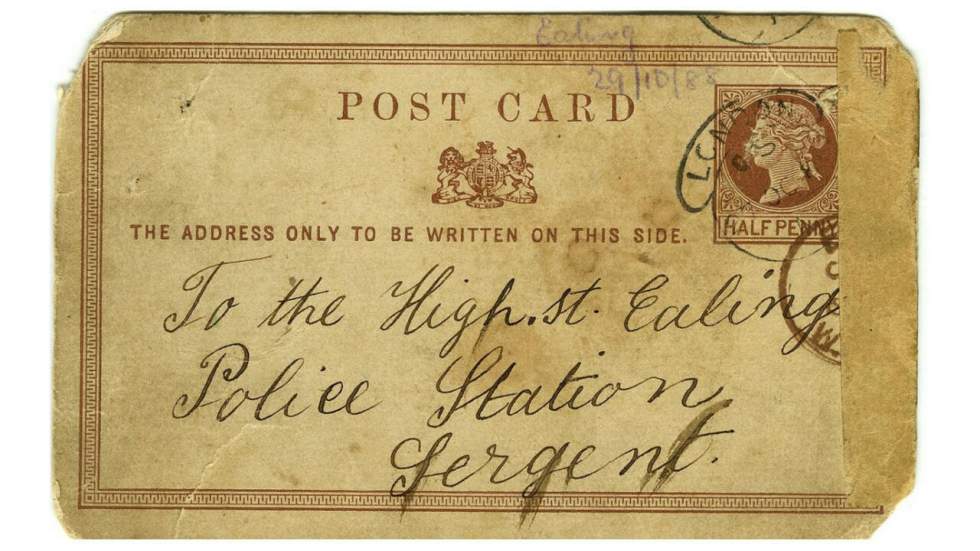 Ealing
29/10/88
POST CARD
LONDON
HALF PENNY
THE ADDRESS ONLY TO BE WRITTEN ON THIS SIDE.
To the High.st. Ealing
Police Station
Sergent.